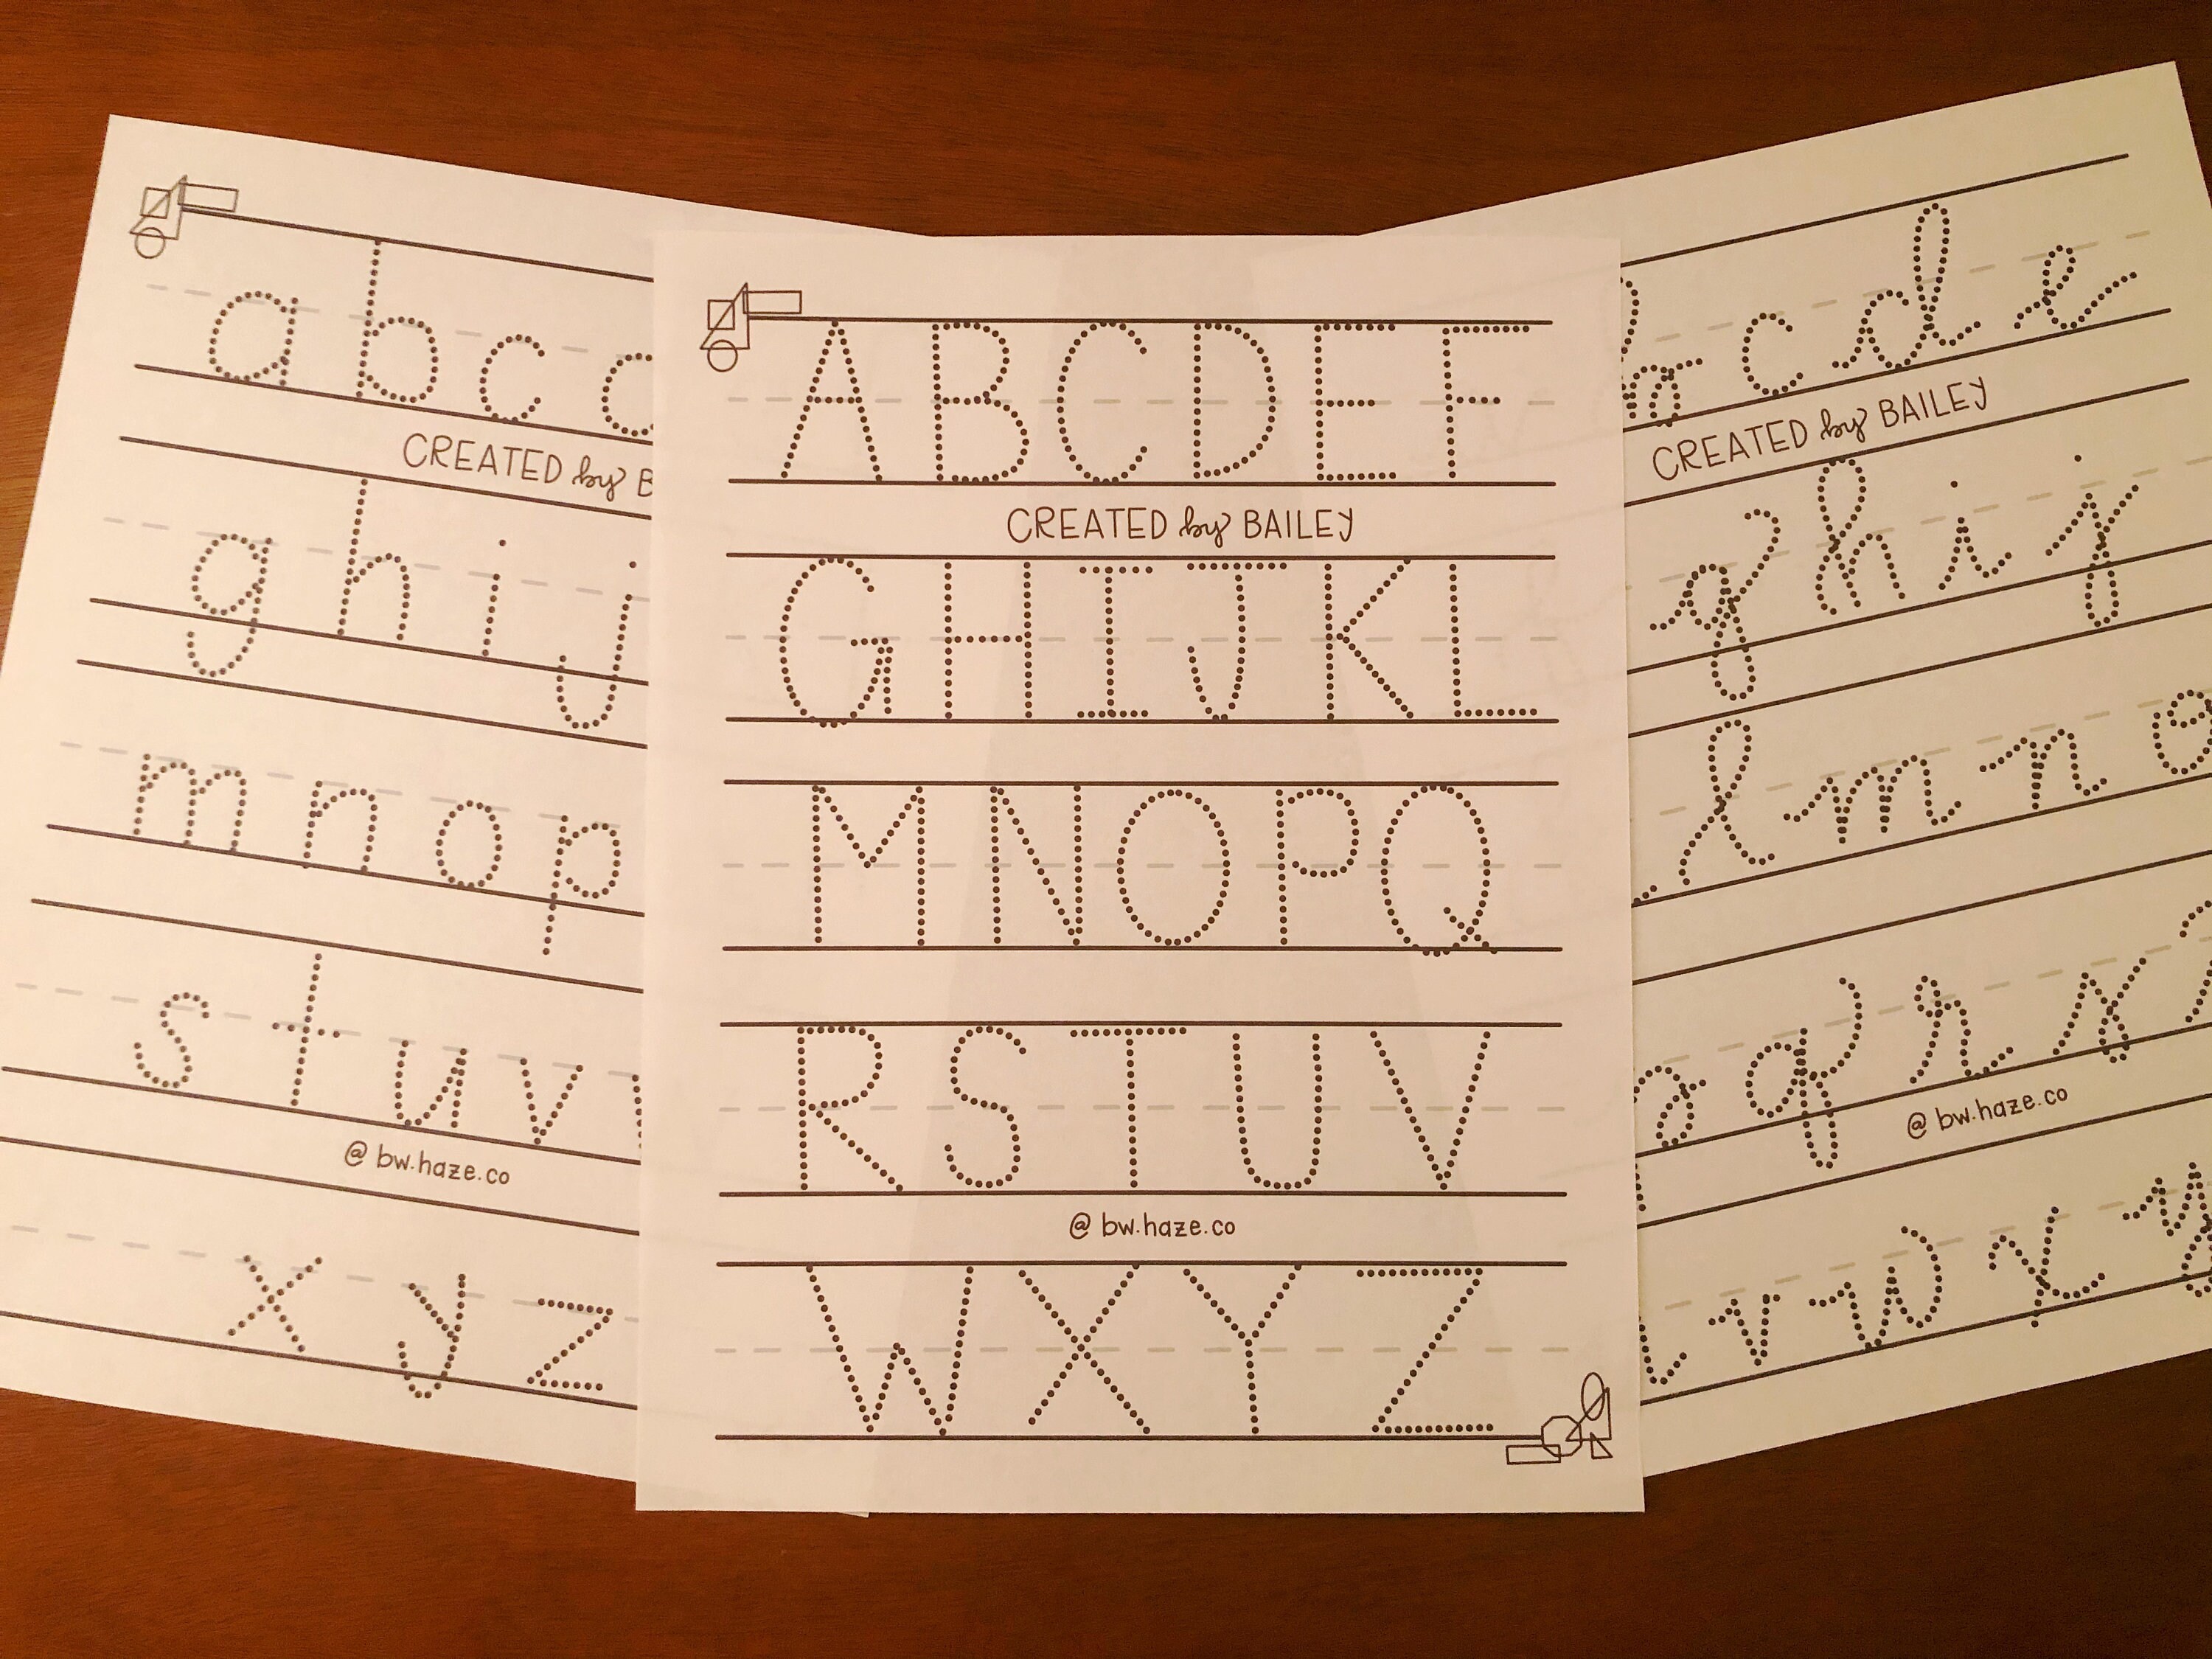 a b c
CREATED by
g h i j
m n o p
s t u v
@ bw.haze.co
x y z
A B C D E F
CREATED by BAILEY
G H I J K L
M N O P Q
R S T U V
@ bw.haze.co
W X Y Z
b c d e
CREATED by BAILEY
g h i j
l m n o
p q r s
@ bw.haze.co
v w x y